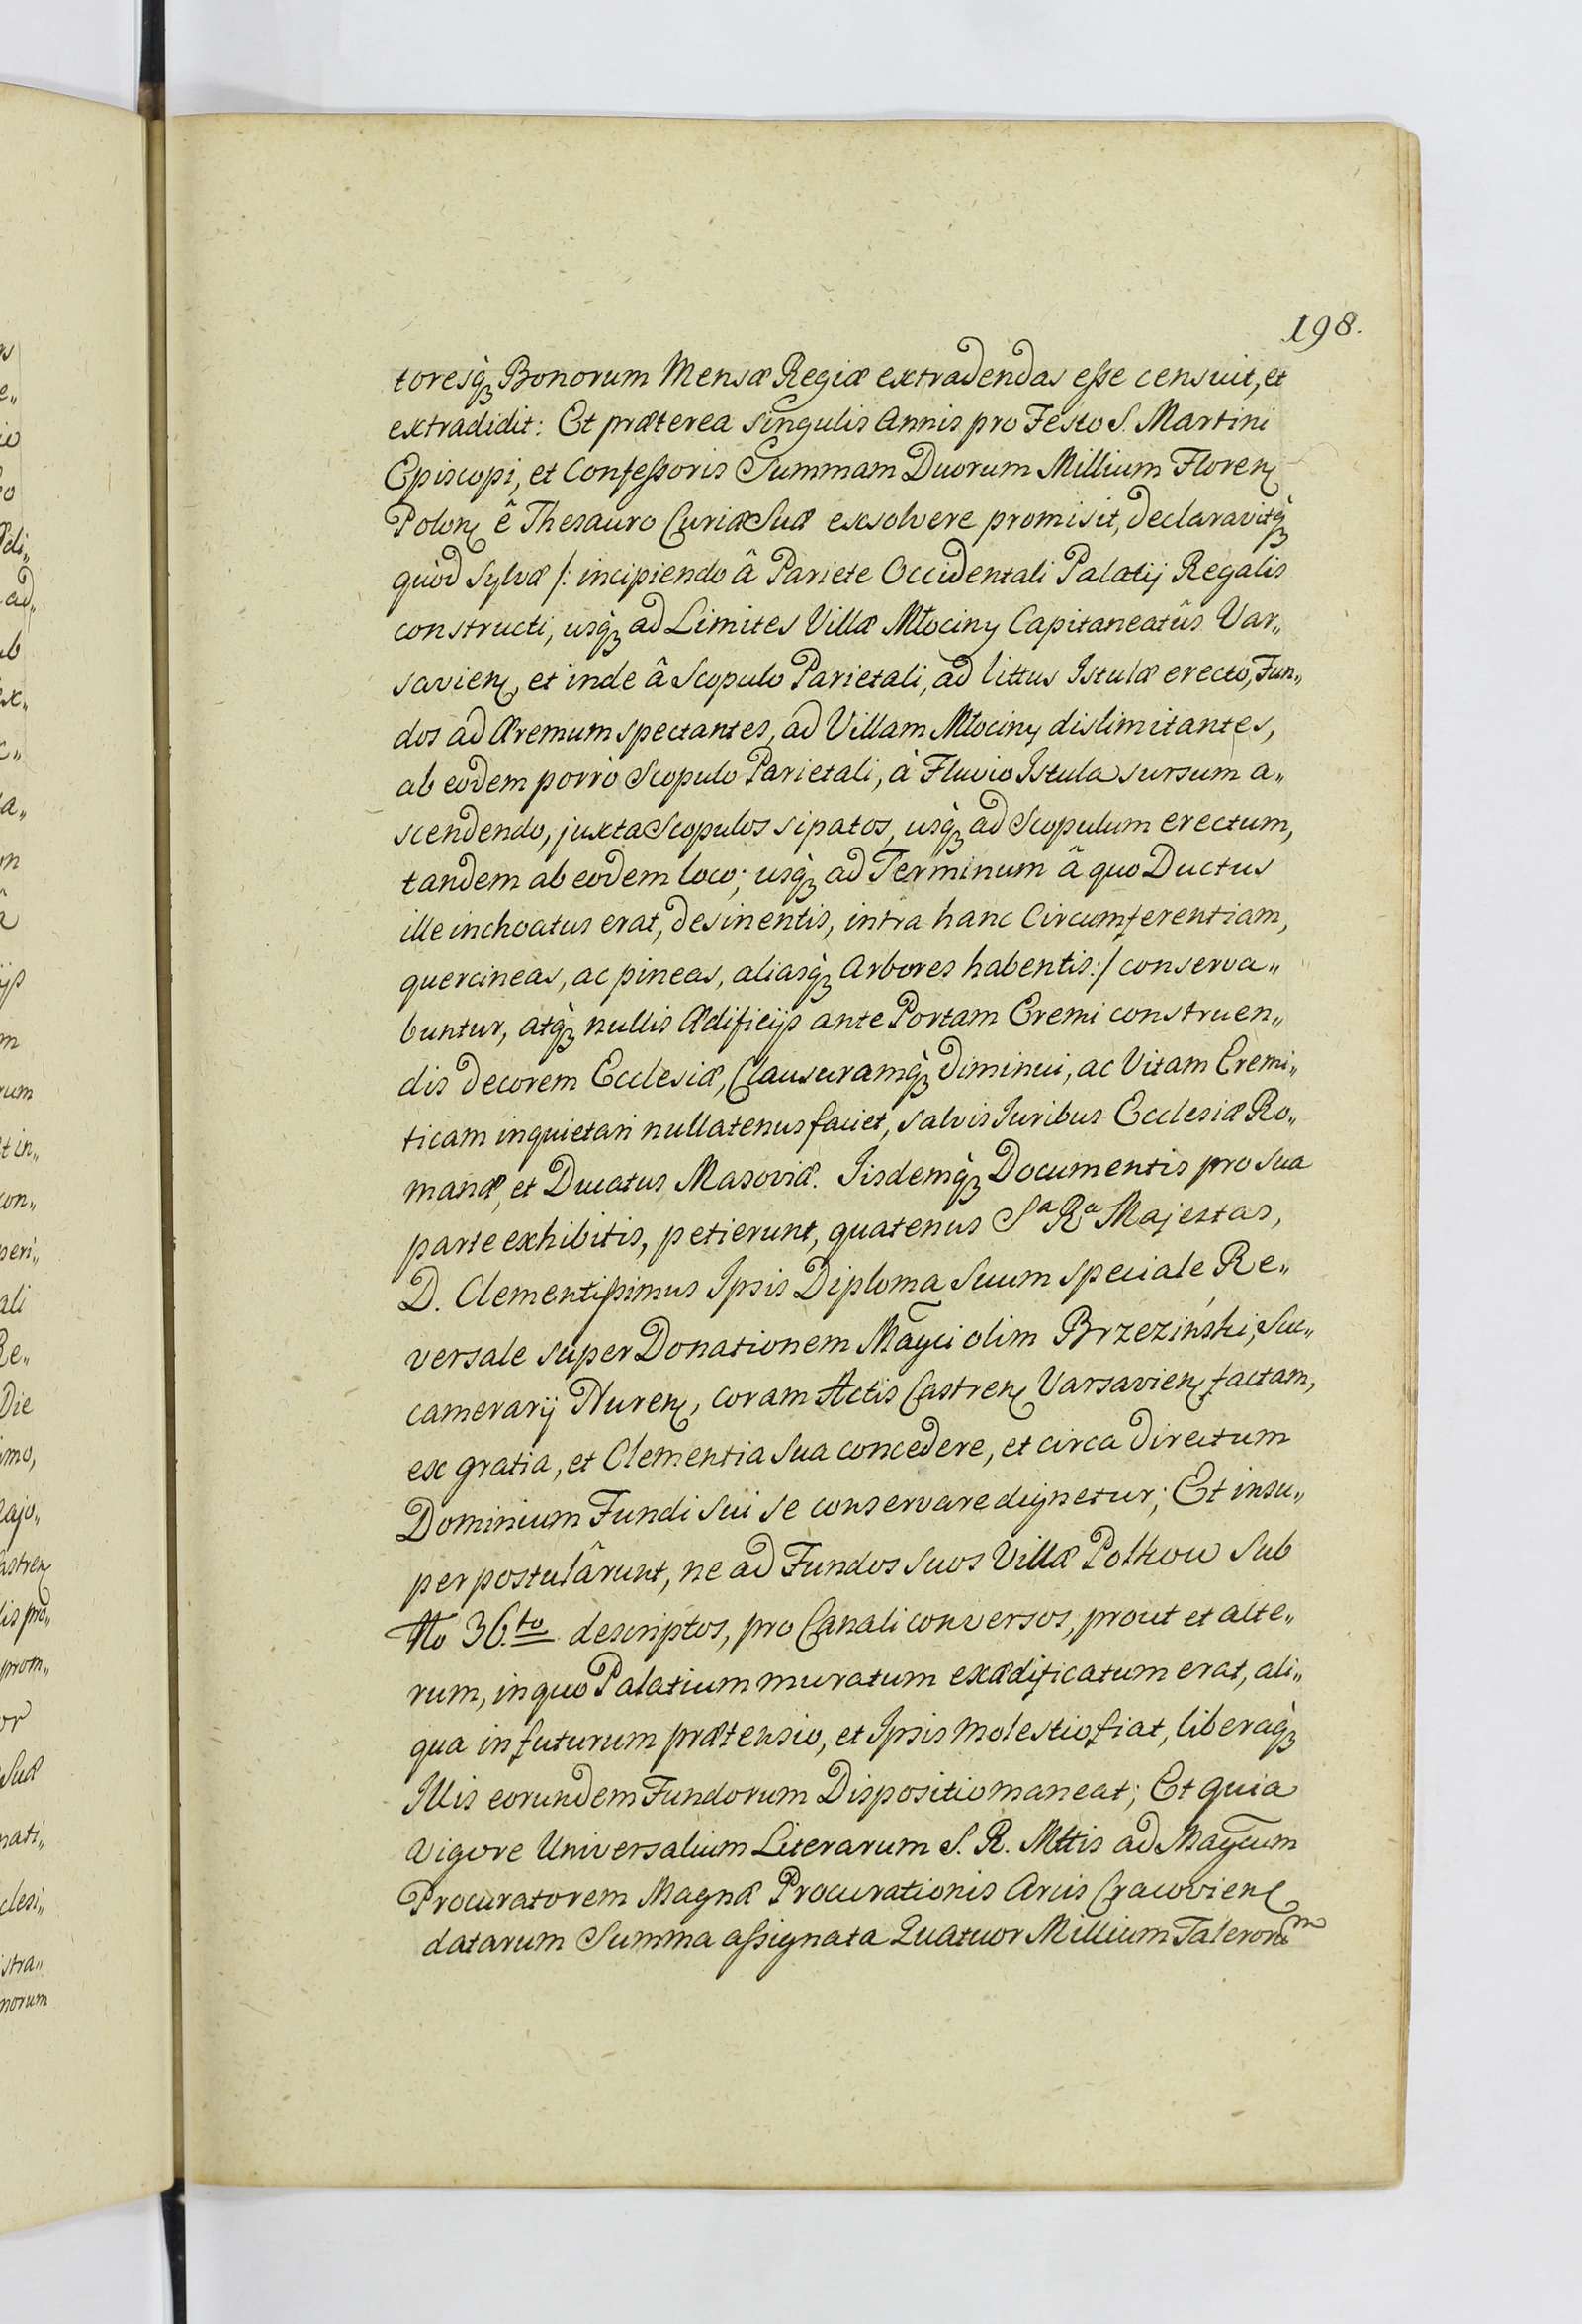 198.
toresq̀ꝫ Bonorum Mensæ Regiæ extradendas eſse censuit, et
extradidit: Et præterea singulis Annis pro Festo S. Martini
Episcopi, et Confeſsoris Summam Duorum Millium Floren
Polon ê Thesauro Curiæ Suæ exsolvere promisit, declaravitq̀ꝫ
quòd Sylvæ /: incipiendo â Pariete Occidentali Palatij Regalis
constructi, usq̀ꝫ ad Limites Villæ Młociny Capitaneatûs Var„
savien, et inde â Scopulo Parietali, ad littus Istulæ erecto, Fun„
dos ad Æremum spectantes, ad Villam Młociny dislimitantes,
ab eodem porrò Scopulo Parietali, à Fluvio Istula sursum a„
scendendo, juxta Scopulos sipatos, usq̀ꝫ ad Scopulum erectum,
tandem ab eodem loco; usq̀ꝫ ad Terminum â quo Ductus
ille inchoatus erat, desinentis, intra hanc Circumferentiam,
quercineas, ac pineas, aliasq̀ꝫ Arbores habentis:/ conserva„
buntur, atq̀ꝫ nullis Ædificijs ante Portam Eremi construen„
dis decorem Ecclesiæ, Clausuramq̀ꝫ diminui, ac Vitam Eremi„
ticam inquietari nullatenus faciet, salvis Iuribus Ecclesiæ Ro„
manæ, et Ducatus Masoviæ. Iisdemq̀ꝫ Documentis pro sua
parte exhibitis, petierunt, quatenus Sª Rª Majestas,
D. Clementiſsimus Ipsis Diploma Suum speciale Re„
versale super Donationem Magci olim Brzeziński, Suc„
camerarij Nuren, coram Actis Castren Varsavien factam,
ex gratia, et Clementia Sua concedere, et circa directum
Dominium Fundi Sui se conservare dignetur; Et insu„
per postulârunt, ne ad Fundos suos Villæ Polkow Sub
No 36.to descriptos, pro Canali conversos, prout et alte„
rum, in quo Palatium muratum exædificatum erat, ali„
qua in futurum prætensio, et Ipsis molestio fiat, liberaq̀ꝫ
Illis eorundem Fundorum Dispositio maneat; Et quia
vigore Universalium Literarum S. R. Mttis ad Magcum
Procuratorem Magnæ Procurationis Arcis Cracovien
datarum Summa aſsignata Quatuor Millium Talerorum